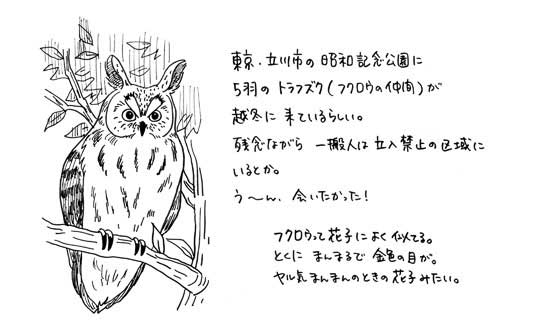 東京・立川市の昭和記念公園に
5羽のトラフズク(フクロウの仲間)が
越冬に来ているらしい。
残念ながら 一搬人は立入禁止の区域に
いるとか。
う〜ん、会いたかった!
フクロウって花子によく似てる。
とくに まんまるで金色の目が。
ヤル気まんまんのときの花子みたい。